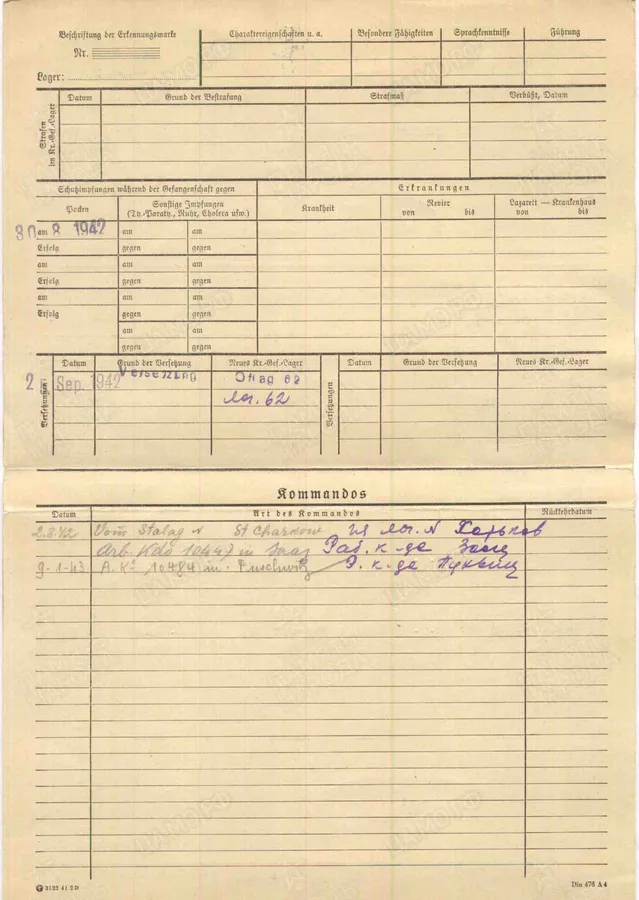 Beschriftung der Erkennungsmarke
Nr.
Lager:
Charaktereigenschaften u. a.
Besondere Fähigkeiten
Sprachkenntnisse
Führung
Strafen im Kr.-Gef.-Lager
Datum
Grund der Bestrafung
Strafmaß
Verbüßt, Datum
Schutzimpfungen während der Gefangenschaft gegen
Erkrankungen
Pocken
Sonstige Impfungen
(Ty.-Paraty., Ruhr, Cholera usw.)
Krankheit
Revier
von bis
Lazarett — Krankenhaus
von bis
30 am 8 1942 am am
Erfolg gegen gegen
am am am
Erfolg gegen gegen
am am am
Erfolg gegen gegen
am am
gegen gegen
Versetzungen
Datum Grund der Versetzung Neues Kr.-Gef.-Lager
Versetzungen
Datum Grund der Versetzung Neues Kr.-Gef.-Lager
2 Sep. 1942 Versetzung Stlag 62
лаг. 62
Kommandos
Datum Art des Kommandos Rückkehrdatum
2.8.42 Vom Stalag St Charkow Из лаг. Харьков
Arb. Kdo 10447 in Раб. к-да
9-1-43 A. Kº 10484 in Puschwitz Р. к-да
3122 41 2 D
Din 476 A 4
ЦАМО РФ